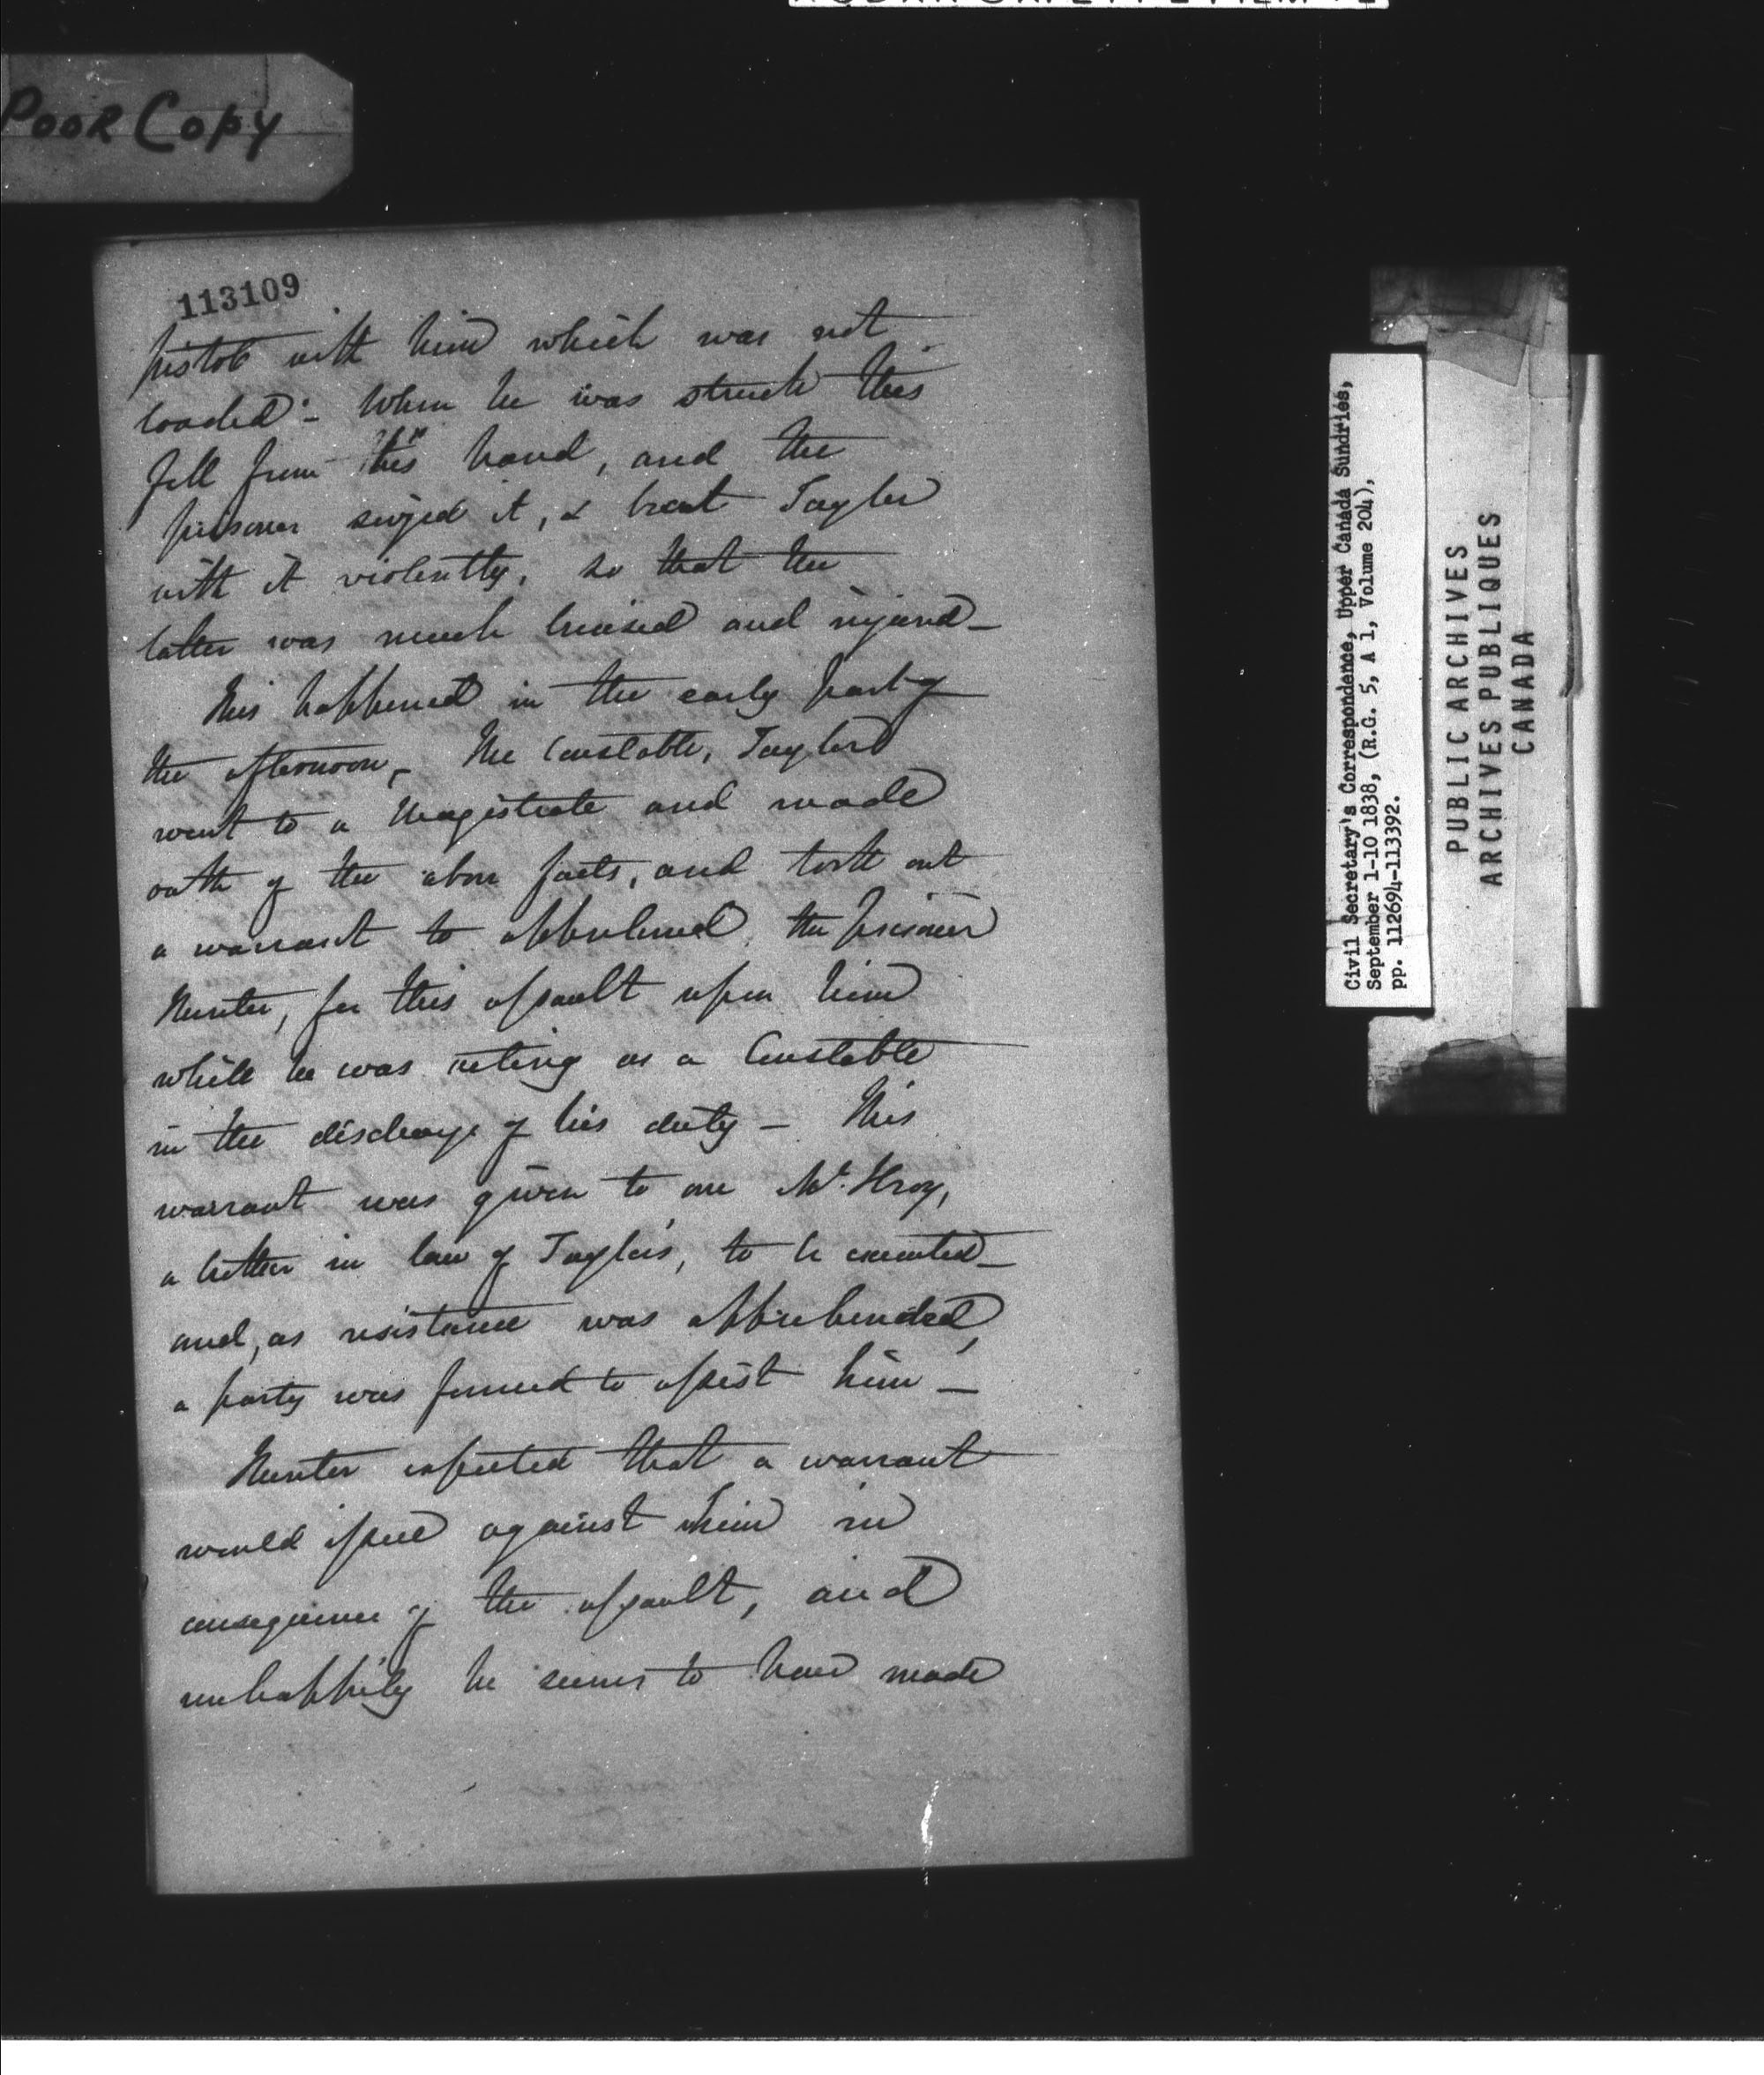 POOR COPY
113109
pistol with him which was not
loaded - When he was struck this
fell from his hand, and the
prisoner seized it, & beat Taylor
with it violently, so that the
latter was much bruised and injured -
This happened in the early part of
the afternoon - The Constable, Taylor
went to a Magistrate and made
oath of the above facts, and took out
a warrant to apprehend the prisoner
Hunter, for this assault upon him
while he was acting as a Constable
in the discharge of his duty - This
warrant was given to one
a brother in law of Taylor's, to be executed -
and, as resistance was apprehended,
a party was formed to assist him -
Hunter expected that a warrant
would issue against him in
consequence of the assault, and
unhappily he seems to have made
Civil Secretary's Correspondence, Upper Canada Sundries,
September 1-10 1838, (R.G. 5, A 1, Volume 204),
pp. 112694-113392.
PUBLIC ARCHIVES
ARCHIVES PUBLIQUES
CANADA